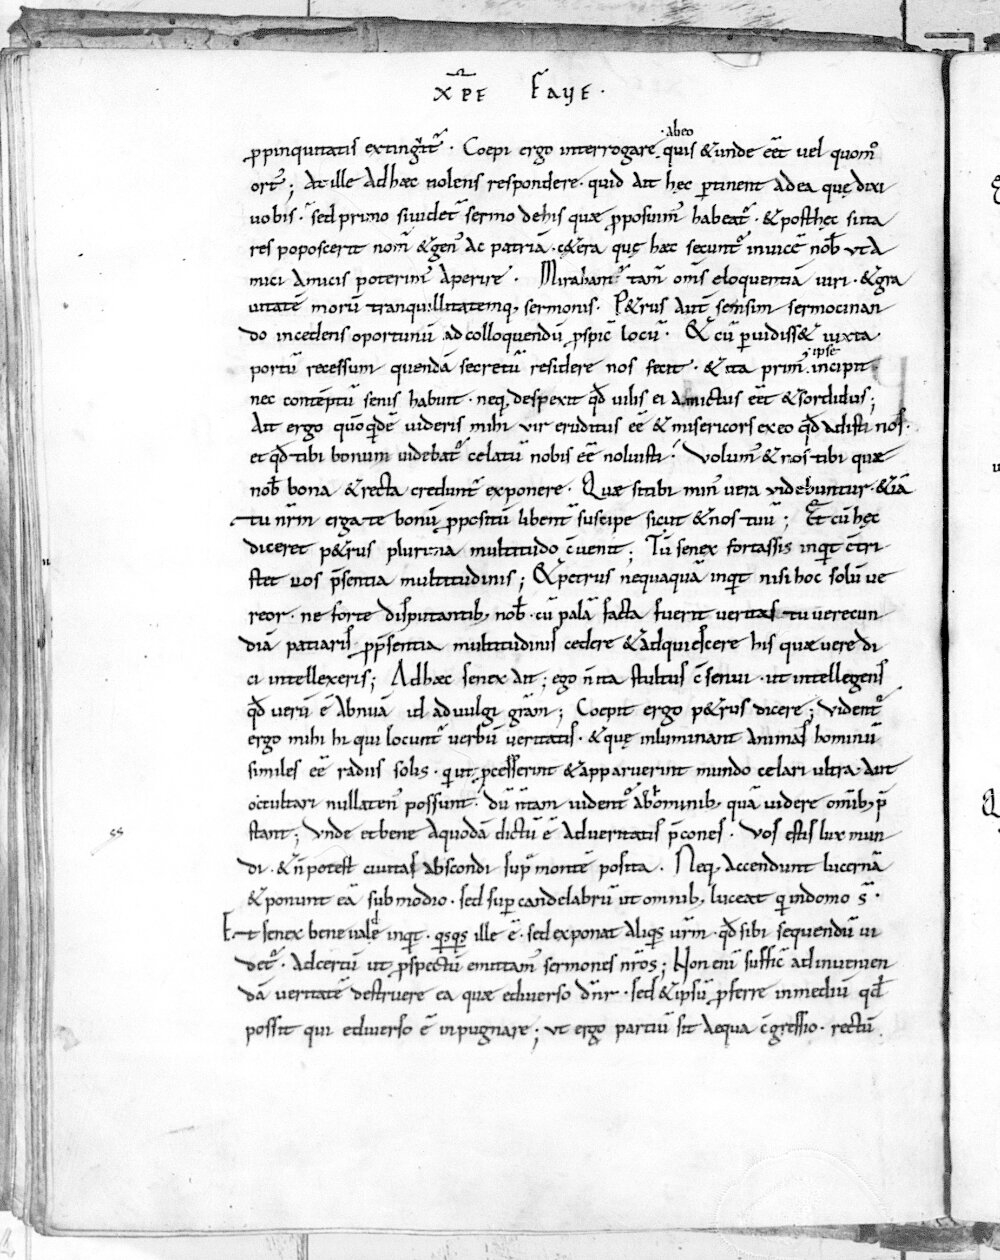 XPE FAVE ·
ppinquitatis extingit̄ · Coepi ergo interrogare · ab eo quis & unde eēt vel quom̊
ort̄ ; At ille Adhæc nolens respondere · quid Ait hęc ptinent ad ea quę dixi
vobis · sed primo si videt̄ sermo de his quæ pposuim̄ habeat̄ · & posthęc si ita
res poposcerit nom̄ & gen̄ Ac patriā · c&era quę hæc secunt̄ invicē nob̄ ut A
mici Amicis poterim̄ Aperire · Mirabam̄ tam̄ om̄s eloquentiā viri · & gra
vitatē morū tranquillitatemq; sermonis · P&rus Aut̄ sensim sermocinan
do incedens oportunū ad colloquendū pspic̄ locū · & cū pvidiss& iuxta
portū recessum quendā secretū residere nos fecit · & ita prim̄ · ipse incipit
nec contēptū senis habuit · neq; despexit qđ vilis ei Amictus eēt & sordidus ;
Ait ergo quō qdē videris mihi vir eruditus eē & misericors ex eo qđ adisti nos ·
et qđ tibi bonum videbat̄ celatū nobis eē noluisti · volum̄ & nos tibi quæ
nob̄ bona & recta credunt̄ exponere · Quæ si tibi min̄ vera videbuntur · & iā
tu nr̄m erga te bonū ppositū libent̄ suscipe sicut & nos tuū ; Et cū hęc
diceret p&rus plurima multitudo c̄venit ; Tū senex fortassis inqt c̄tri
stet vos p̄sentia multitudinis ; & petrus nequaquā inqt nisi hoc solū ve
reor · ne forte disputantib; nob̄ · cū palā facta fuerit veritas tu verecun
diā patiaris p p̄sentia multitudinis cedere & adquiescere his quæ vere di
ci intellexeris ; Adhæc senex Ait ; ego n̄ ita stultus c̄senui · ut intellegens
qđ verū ē Abnuā vel ad vulgi grām ; Coepit ergo p&rus dicere ; Vident̄
ergo mihi hi qui locunt̄ verbū veritatis · & quę inluminant Animas hominū
similes eē radiis solis · q ut pcesserint & apparuerint mundo celari ultra Aut
occultari nullaten̄ possunt · dū n̄ tam vident̄ ab hominib; quā videre omib; p̄
stant ; Unde et bene A quodā dictū ē Ad veritatis p̄cones · Vos estis lux mun
di · & n̄ potest civitas abscondi sup montē posita · Neq; Accendunt lucernā
& ponunt eā sub modio · sed sup candelabrū ut omnib; luceat q in domo s̄ ·
Et senex bene vald inqt · qsqs ille ē · sed exponat Aliqs vr̄m · qđ sibi sequendū vi
det̄ · Ad certū ut pspectū emittam̄ sermones nr̄os ; Non enī suffic̄ ad invenien
dā veritatē destruere ea quæ e diverso dn̄r · sed & ipsū pferre in mediū qđ
possit qui e diverso ē inpugnare ; ut ergo partiū sit Aequa c̄gressio · rectū